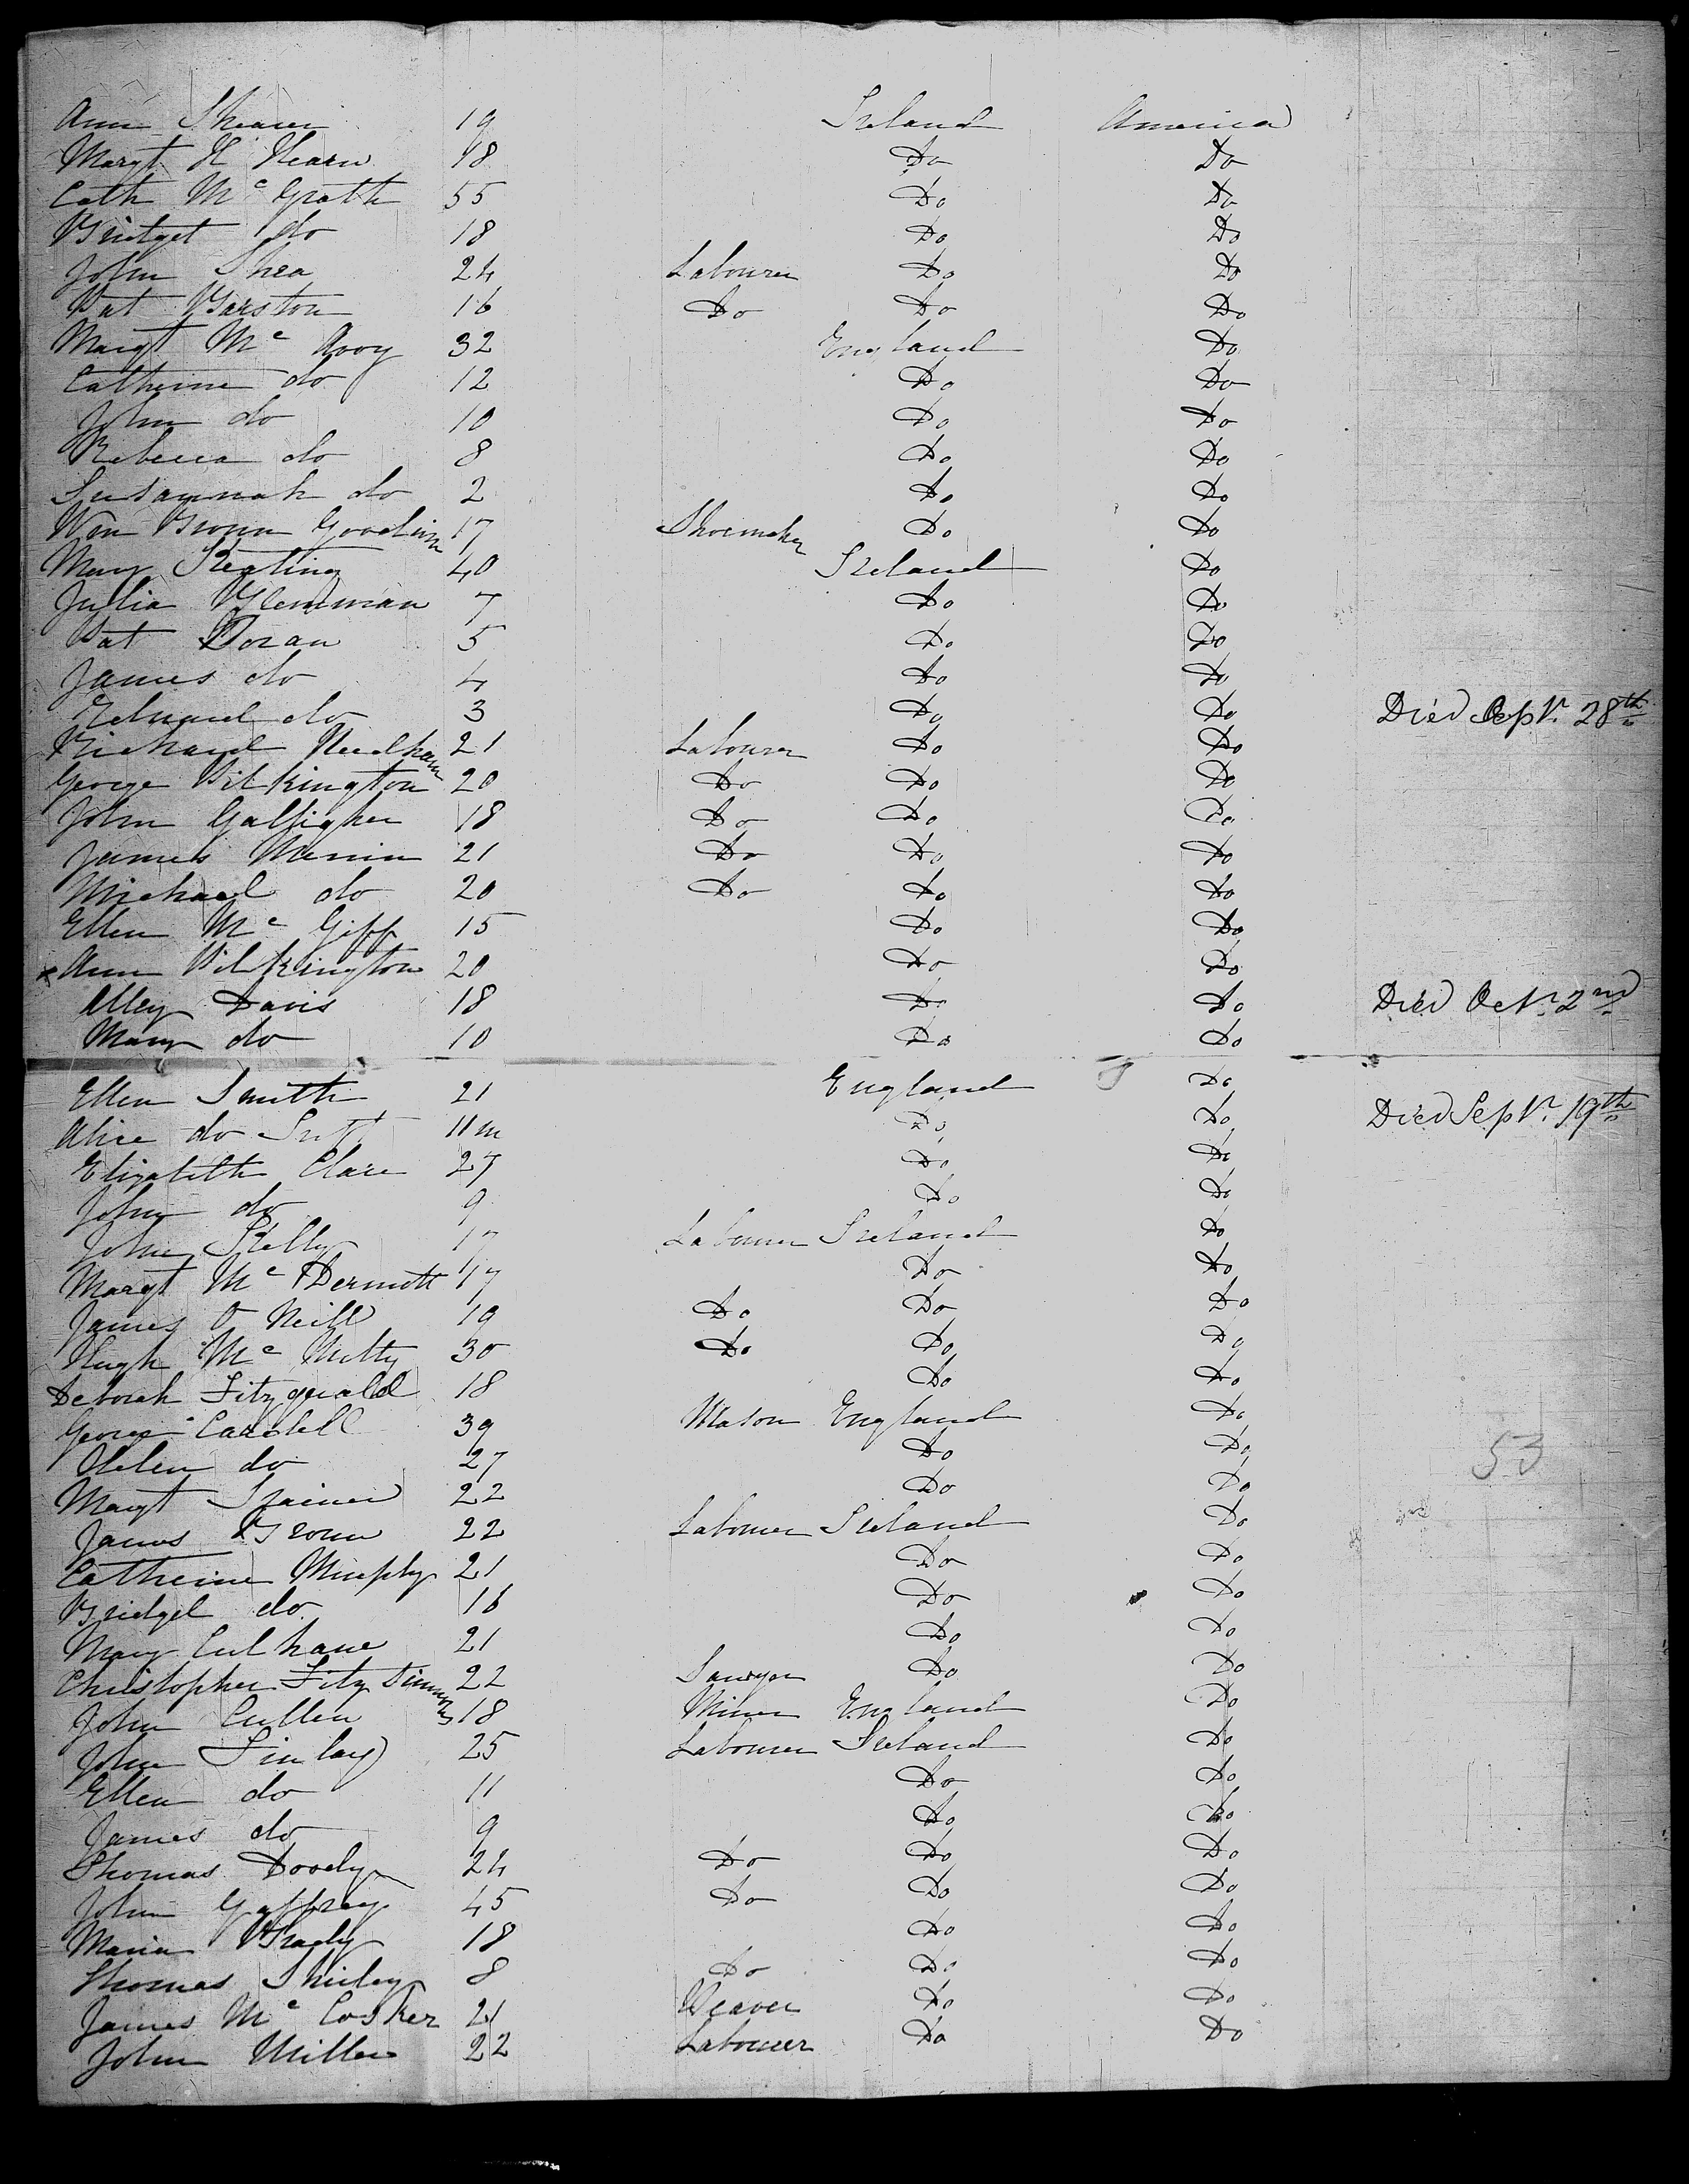 Ann Shearer 19 Ireland America
Margt H Hearn 18 Do Do
Cath Mc Grath 55 Do Do
Bridget do 18 Do Do
John Shea 24 Labourer Do Do
Pat Barston 16 Do Do Do
Margt Mc Avoy 32 England Do
Catherine do 12 Do Do
John do 10 Do Do
Rebecca do 8 Do Do
Susannah do 2 Do Do
Wm Brown Goodwin 17 Shoemaker Do Do
Mary Keating 40 Ireland Do
Julia 7 Do Do
Pat Doran 5 Do Do
James do 4 Do Do
Edward do 3 Do Do Died Sepr. 28th
Richard Needham 21 Labourer Do Do
George Pilkington 20 Do Do Do
John Galligher 18 Do Do Do
James 21 Do Do Do
Michael do 20 Do Do Do
Ellen Mc Giff 15 Do Do
x Ann Pilkington 20 Do Do
Alley Davis 18 Do Do Died Octr. 2nd
Mary do 10 Do Do
Ellen Smith 21 England Do
Alice do 11m Do Do Died Sepr. 19th
Elizabeth Clare 27 Do Do
John do 9 Do Do
John Kelly 17 Labourer Ireland Do
Margt Mc Dermott 17 Do Do
James O Neill 19 Do Do Do
Hugh Mc Nitty 30 Do Do Do
Deborah Fitzgerald 18 Do Do
George 39 Mason England Do
Helen do 27 Do Do 53
Margt 22 Do Do
James Brown 22 Labourer Ireland Do
Catherine Murphy 21 Do Do
Bridget do 16 Do Do
Mary Culhane 21 Do Do
Christopher Fitz Simmons 22 Sawyer Do Do
John Cullen 18 Miner England Do
John Finlay 25 Labourer Ireland Do
Ellen do 11 Do Do
James do 9 Do Do
Thomas Doody 24 Do Do Do
John Gaffney 45 Do Do Do
Maria Brady 18 Do Do
Thomas Shirley 8 Do Do Do
James Mc Cosker 21 Weaver Do Do
John Miller 22 Labourer Do Do